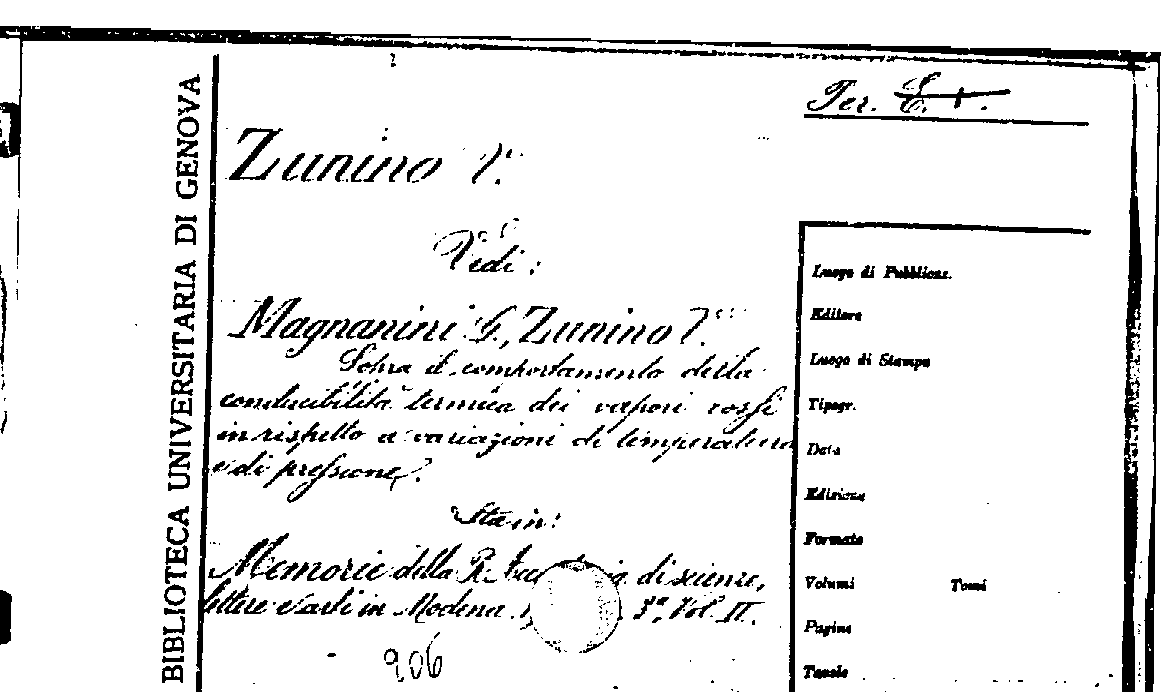 BIBLIOTECA UNIVERSITARIA DI GENOVA
Per. E. 1.
Zunino V.
Vedi:
Magnanini G., Zunino V.
Sopra il comportamento della
conducibilità termica dei vapori rossi
in rispetto a variazioni di temperatura
e di pressione.
Sta in:
Memorie della R. di scienze,
lettere ed arti in Modena 3ª, Vol. II.
906
Luogo di Pubblicaz.
Editore
Luogo di Stampa
Tipogr.
Data
Edizione
Formato
Volumi Tomi
Pagine
Tavole